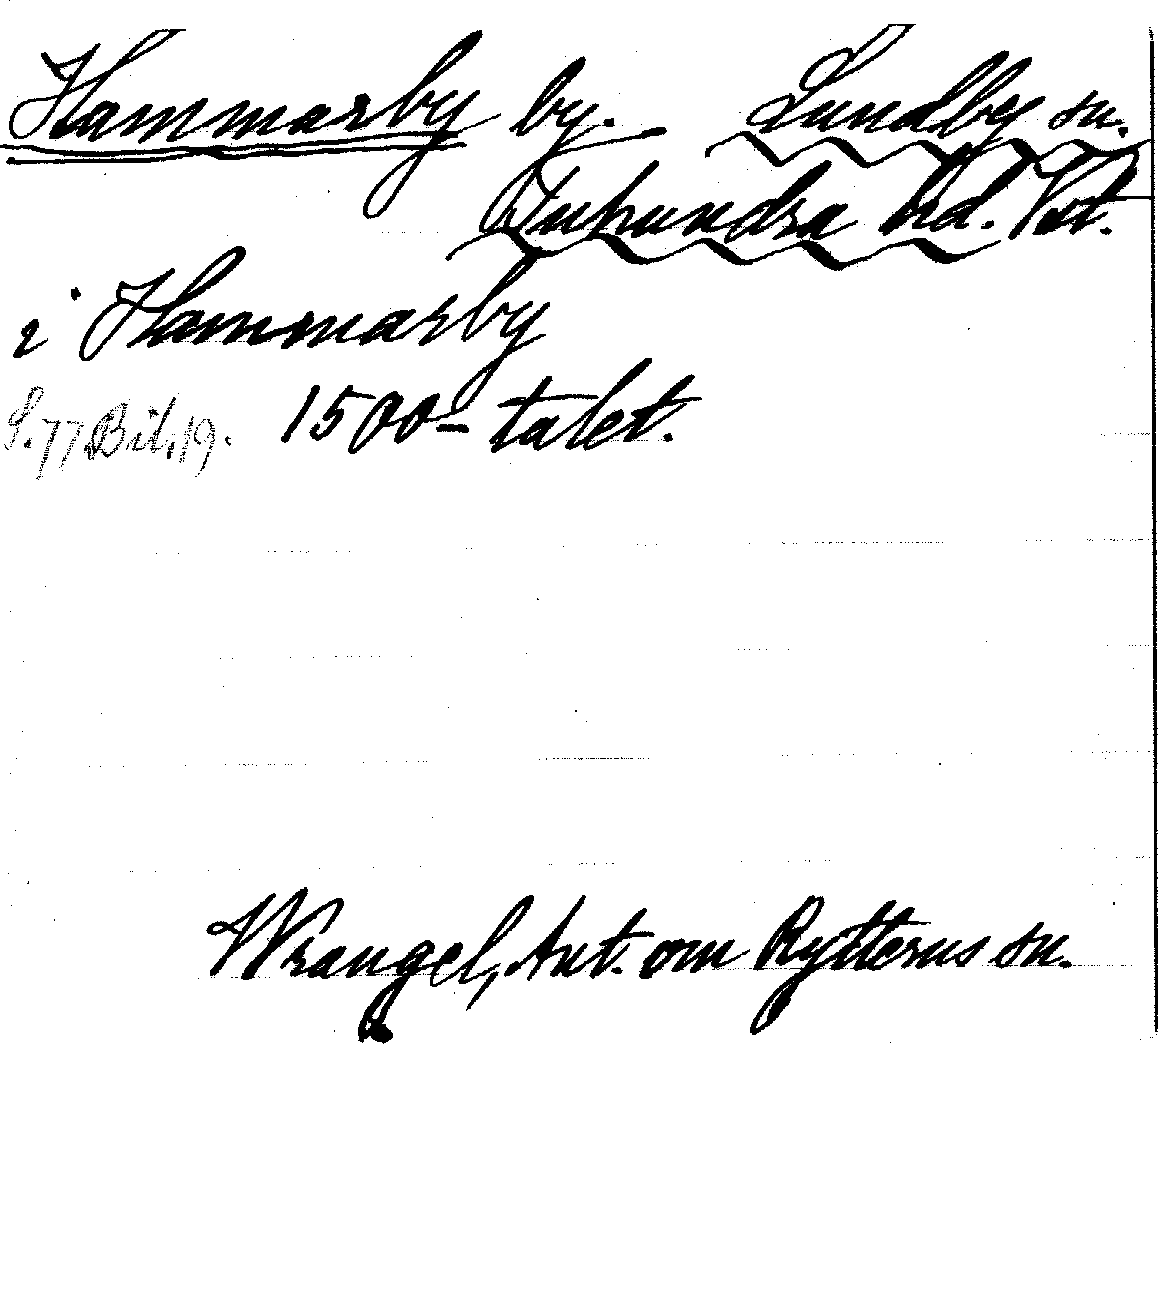 Hammarby by. Lundby sn.
Tuhundra hrd. Vstm.
i Hammarby
S. 77 Bil. 19. 1500-talet.
Wrangel, Ant. om Rytterns sn.